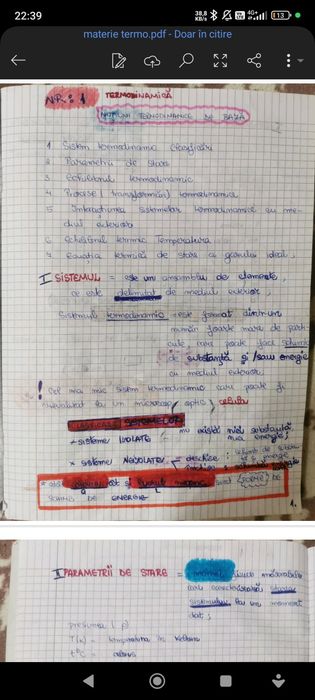 22:39
38,8 KB/s
4G+
13
materie termo.pdf - Doar în citire
NR: 1 TERMODINAMICĂ
NOȚIUNI TERMODINAMICE DE BAZĂ
1 Sistem termodinamic clasificări
2 Parametrii de stare
3 Echilibrul termodinamic
4 Procese (transformări) termodinamice
5 Interacțiunea sistemelor termodinamice cu me-
diul exterior
6 Echilibrul termic Temperatura
7 Ecuația termică de stare a gazului ideal,
I SISTEMUL = este un ansamblu de elemente,
ce este delimitat de mediul exterior,
Sistemul termodinamic = este format dintr-un
număr foarte mare de parti-
cule, care poate face schimb
de substanță și/sau energie
cu mediul exterior.
! Cel mai mic sistem termodinamic care poate fi
la un microscop optic celula
SISTEMELOR
sisteme IZOLATE nu există nici substanță
nici energie;
* sisteme NEIZOLATE = deschise:
și lucrul mecanic sunt FORME DE
SCHIMB DE ENERGIE
1.
II PARAMETRII DE STARE =
care caracterizează starea
sistemului la un moment
dat;
presiunea (p)
T(K) = temperatura în Kelvin
t°C =